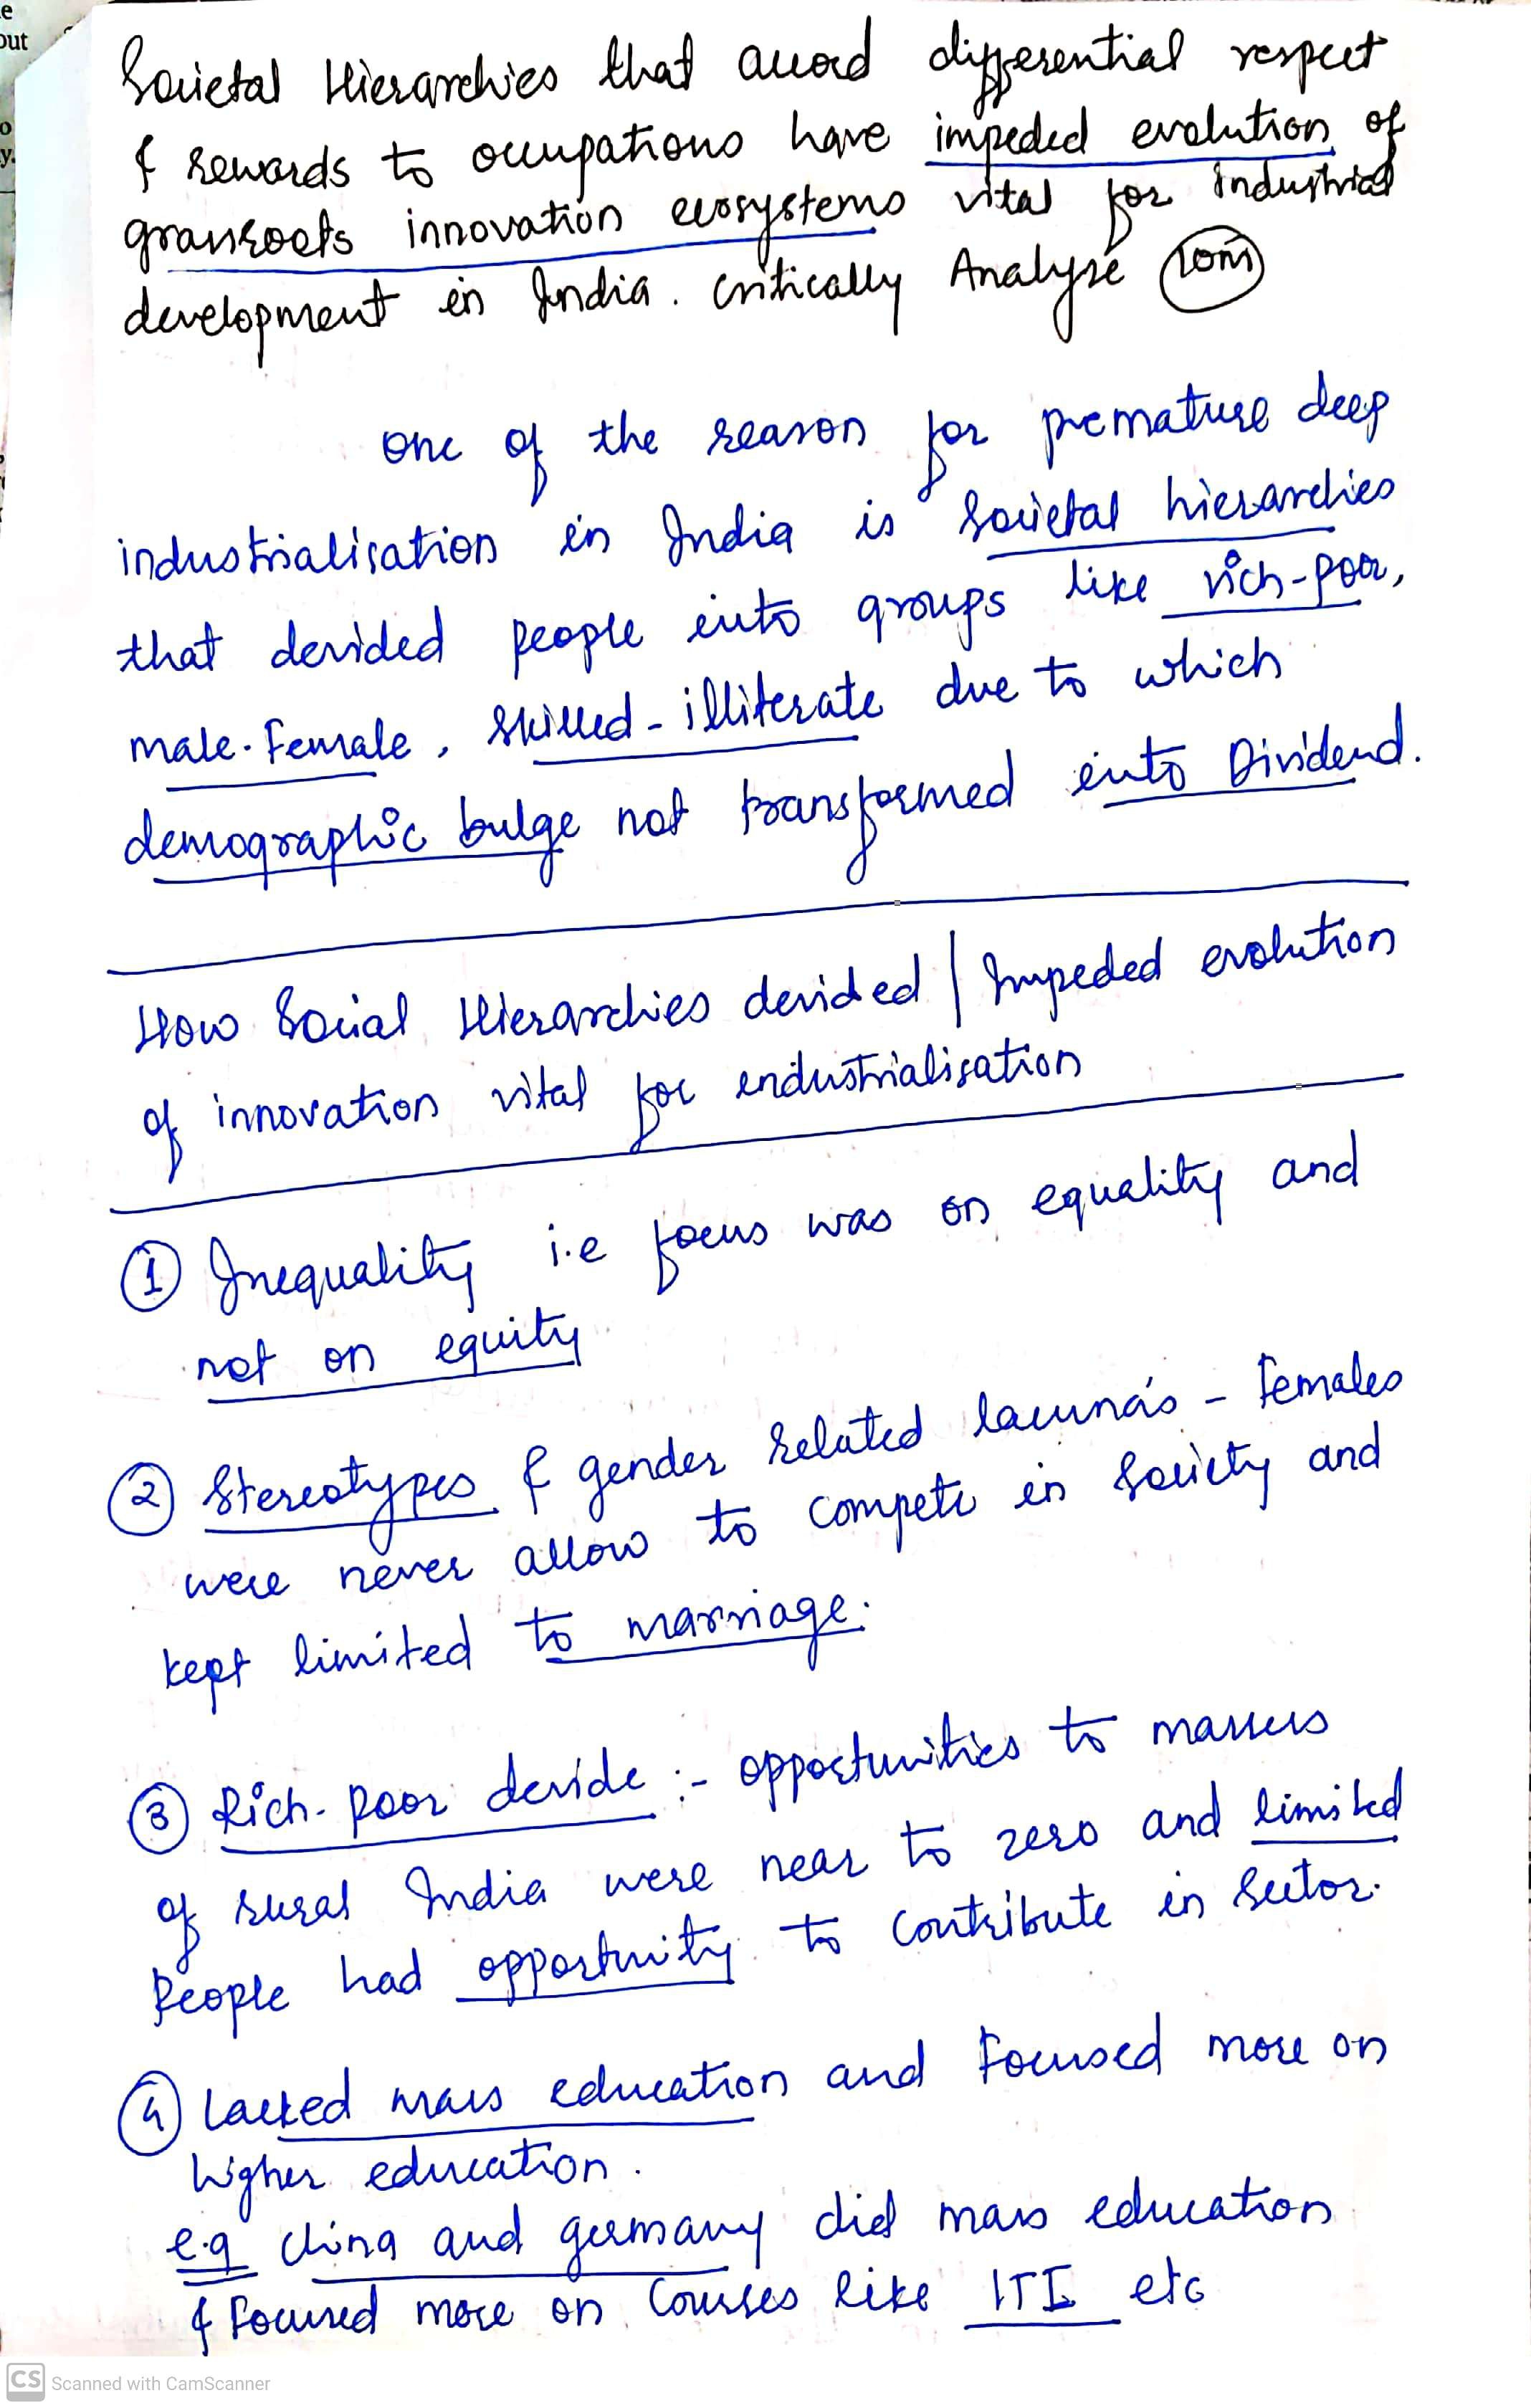 Societal Hierarchies that accord differential respect
& rewards to occupations have impeded evolution of
grassroots innovation ecosystems vital for Industrial
development in India. Critically Analyse 10m
one of the reason for premature deep
industrialisation in India is societal hierarchies
that devided people into groups like rich-poor,
male-Female, skilled-illiterate due to which
demographic bulge not transformed into Dividend.
How Social Hierarchies devided | Impeded evolution
of innovation vital for industrialisation
① Inequality i.e focus was on equality and
not on equity
② Stereotypes & gender related lacuna's - Females
were never allow to compete in society and
kept limited to marriage.
③ Rich-Poor devide :- opportunities to masses
of rural India were near to zero and limited
People had opportunity to contribute in sector.
④ Lacked mass education and Focused more on
higher education.
e.g China and germany did mass education
& Focused more on Courses like ITI etc
CS Scanned with CamScanner